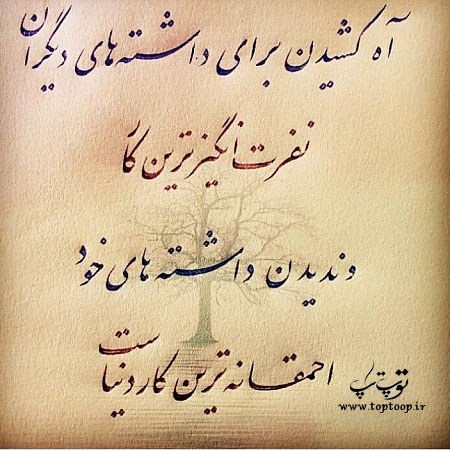 آه کشیدن برای داشته‌های دیگران
نفرت‌انگیزترین کار
و ندیدن داشته‌های خود
احمقانه‌ترین کار دنیاست
توپ تاپ
www.toptoop.ir